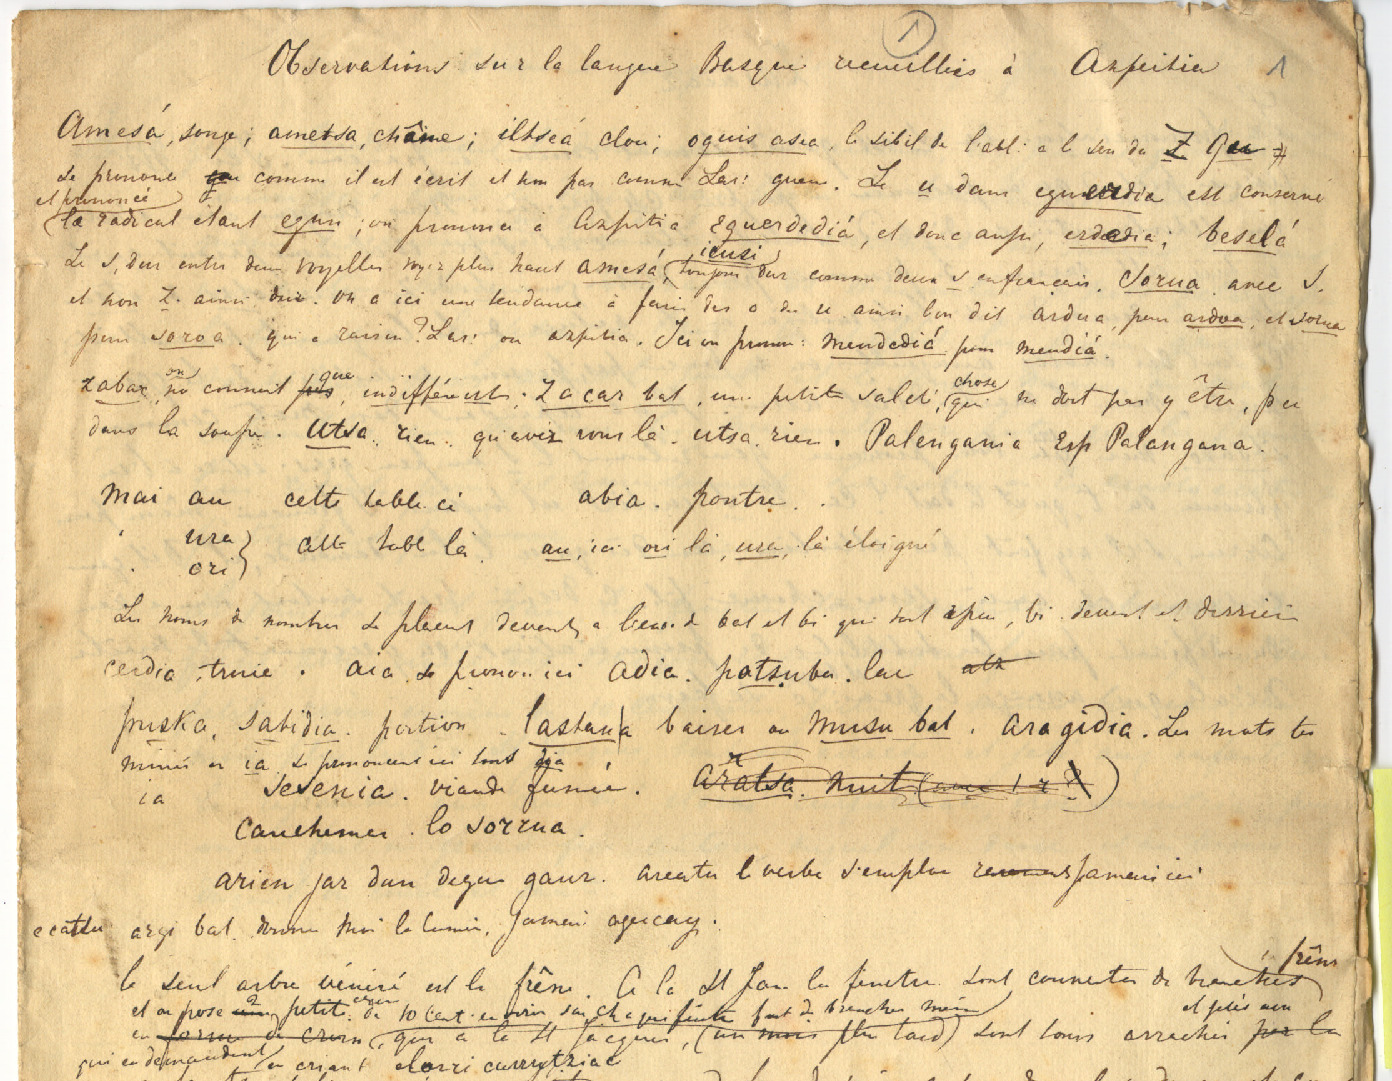 1
Observations sur la langue Basque recueillies à Azpeitia 1
Amesá, songe; ametsa, chaîne; iltseá clou; oguis asea, le sibil de l'abl: a le son du Z Gu
se prononce comme il est écrit et non pas comme Las: guen. Le u dans eguerdia est conservé
et prononcé
le radical étant egun; on prononce à Azpeitia eguerdediá, et donc aussi, erdedia; beselá
ieusi
Le s, dur entre deux voyelles voyez plus haut amesá, toujours dur comme deux s en français. Sorua avec S.
et non Z. ainsi on a ici une tendance à faire des o des u ainsi l'on dit ardua, pour ardoa, et sorua
pour soroa. qui a raison? Las: ou azpeitia. Ici on pronon: mendediá pour mendiá.
on que chose
zabar, ne connait pas, indifférent; Zacar bat, une petite saleté, qui ne doit pas y être, p. ex
dans la soupe. Utsa rien. qu'avez vous là. utsa. rien. Palengania Esp Palangana.
mai au cette table ci abia. poutre.
ura cette table là au, ici ori là, ura, là éloigné
ori
Les noms de nombre se placent devant, bat et bi qui sont, bi devant et derrière
cerdia, truie. aia se prononce ici adia. potsuba. lac
puska, satidia. portion lastana baiser ou musu bat. aragidia. Les mots ter
minés en ia se prononcent ici tous dia
ia sesenia. viande fumée. aratsa nuit (avec 1 r?)
Cauchemar. lo sorrua.
arien jar dun degu gaur. areatu le verbe s'emploie jamais ici
ecatsu argi bat. donne moi la lumière, jamais
frêne
le seul arbre vénéré est le frêne. A la St Jean les fenêtres sont couvertes de branches
et on pose 2 petites croix de 10 cent. environ sur chaque fenêtre faites de branches même et jetés aux
en forme de croix, qui à la St Jacques, (un mois plus tard) sont tous arrachés par la
qui en demandent en criant elorri